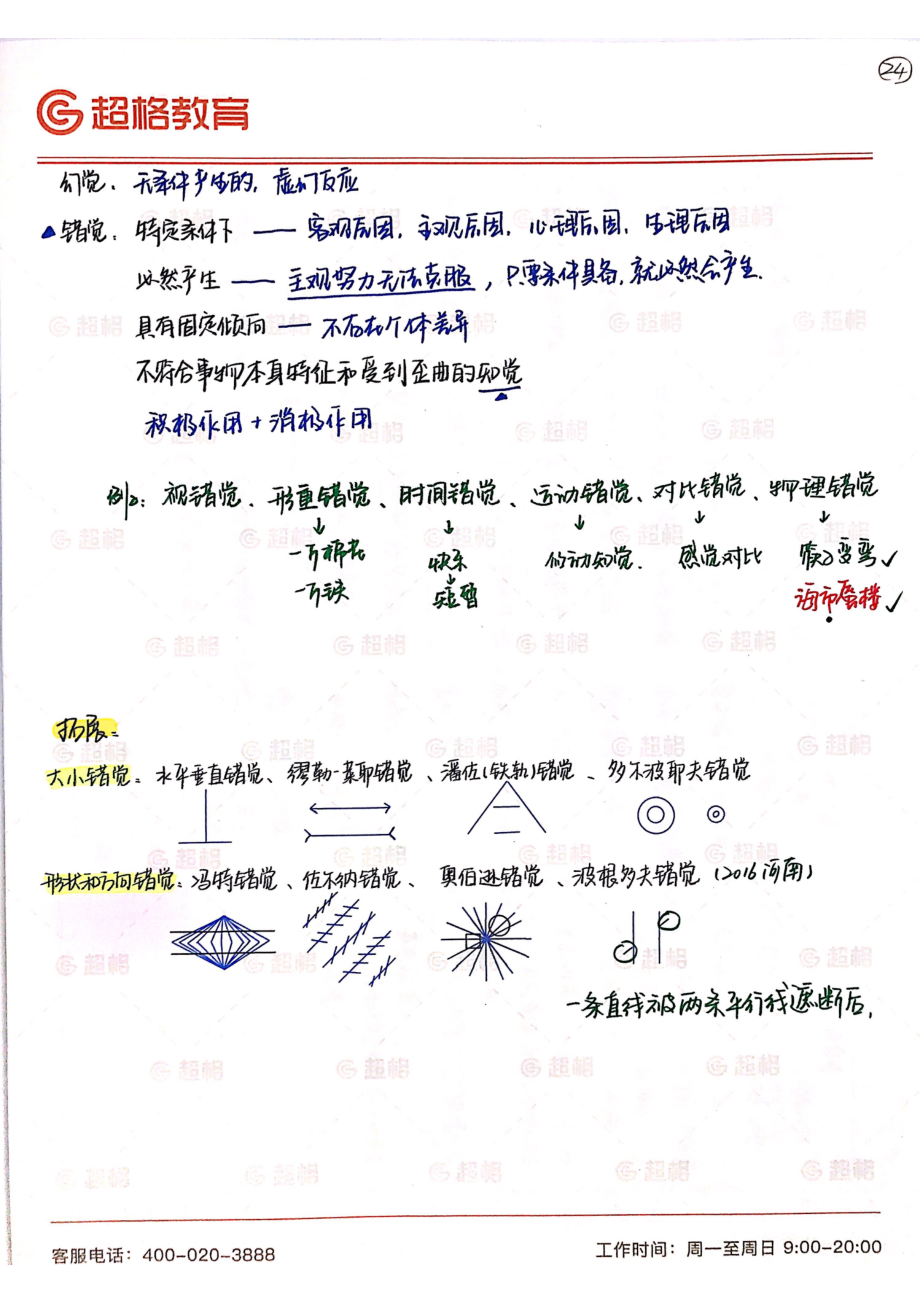 24
超格教育
幻觉：无条件产生的，虚幻反应
▲错觉：特定条件下 —— 客观原因，主观原因，心理原因，生理原因
必然产生 —— 主观努力无法克服，只要条件具备，就必然会产生.
具有固定倾向 —— 不存在个体差异
不符合事物本身特征和受到歪曲的知觉
积极作用 + 消极作用
例：视错觉、形重错觉、时间错觉、运动错觉、对比错觉、物理错觉
↓ ↓ ↓ ↓ ↓
一斤棉花 快乐 似动知觉. 感觉对比 筷子变弯 ✓
↓
一斤铁 短暂 海市蜃楼 ✓
拓展：
大小错觉：水平垂直错觉、缪勒-莱耶错觉、潘佐(铁轨)错觉、多尔波耶夫错觉
形状和方向错觉：冯特错觉、佐尔纳错觉、奥伯逊错觉、波根多夫错觉 (2016河南)
一条直线被两条平行线遮断后，
客服电话：400-020-3888
工作时间：周一至周日 9:00-20:00